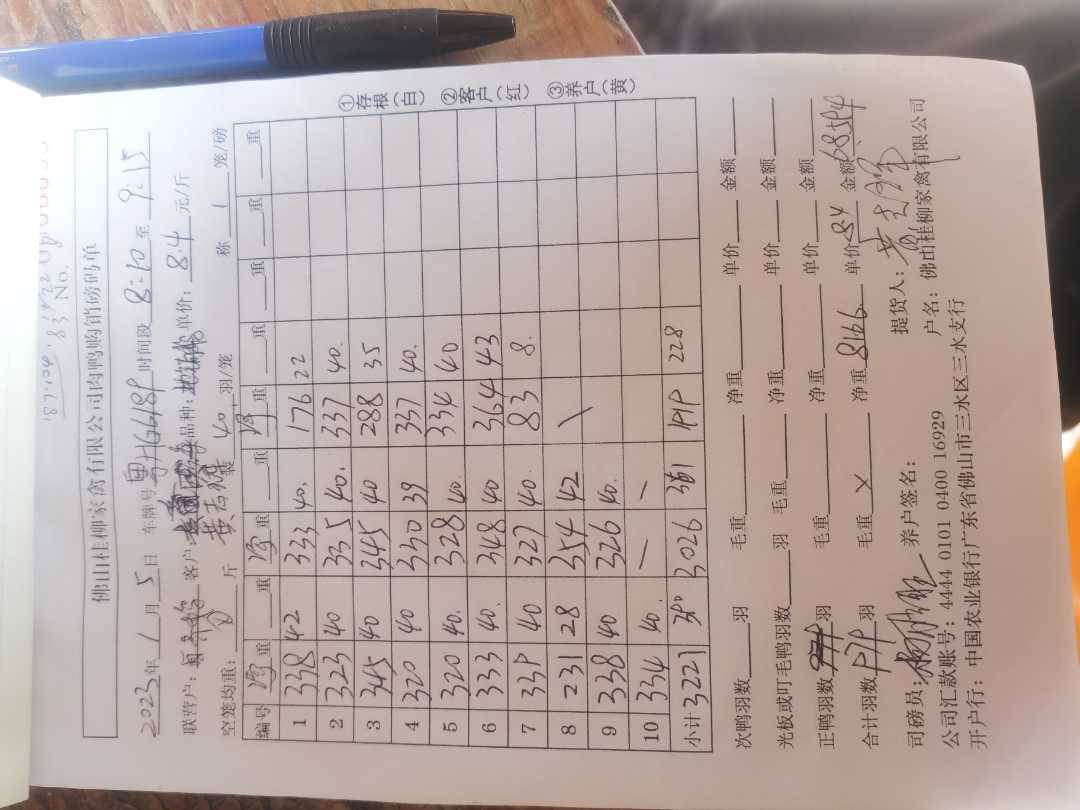 187·104
·83
No.
佛山桂柳家禽有限公司肉鸭购销磅码单
2023年 1 月 5 日 车牌号 粤H6618P 时间段 8:10 至 9:15
联营户: 客户: 品种: 单价: 8.4 元/斤
空笼均重: 斤 装 40 羽/笼 称 1 笼/磅
编号 净重 重 净重 重 净重 重 重 重 重
1 338 42 333 40. 176 22
2 323 40 335 40. 337 40.
3 345 40 345 40 288 35
4 320 40 330 39 337 40.
5 320 40. 328 40. 334 40
6 333 40. 348 40 364 43
7 339 40 327 40. 83 8.
8 231 28 354 42 \
9 338 40 326 40.
10 334 40. — —
小计 3221 390 3026 361 1919 228
①存根(白) ②客户(红) ③养户(黄)
次鸭羽数 羽 毛重 净重 单价 金额
光板或叮毛鸭羽数 羽 毛重 净重 单价 金额
正鸭羽数 羽 毛重 净重 单价 金额
合计羽数 979 羽 毛重 × 净重 8166. 单价 8.4 金额 68594
司磅员: 养户签名: 提货人:
公司汇款账号: 4444 0101 0400 16929 户名: 佛山桂柳家禽有限公司
开户行: 中国农业银行广东省佛山市三水区三水支行